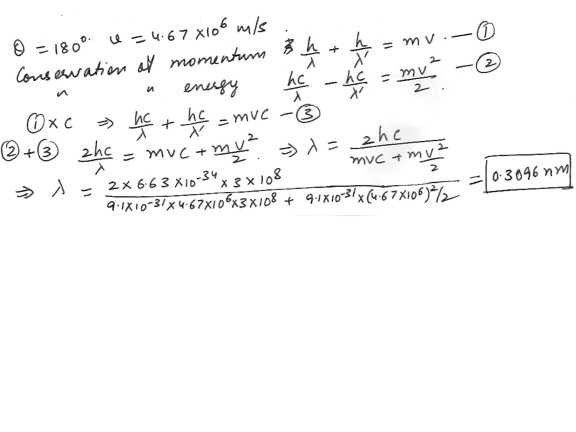 θ = 180°. v = 4.67 × 10⁶ m/s.
Conservation of momentum h/λ + h/λ' = mv. — ①
" " energy hc/λ - hc/λ' = mv²/2. — ②
① × c ⇒ hc/λ + hc/λ' = mvc — ③
② + ③ 2hc/λ = mvc + mv²/2. ⇒ λ = 2hc/(mvc + mv²/2)
⇒ λ = (2 × 6.63 × 10⁻³⁴ × 3 × 10⁸)/(9.1 × 10⁻³¹ × 4.67 × 10⁶ × 3 × 10⁸ + 9.1 × 10⁻³¹ × (4.67 × 10⁶)²/2) = 0.3096 nm